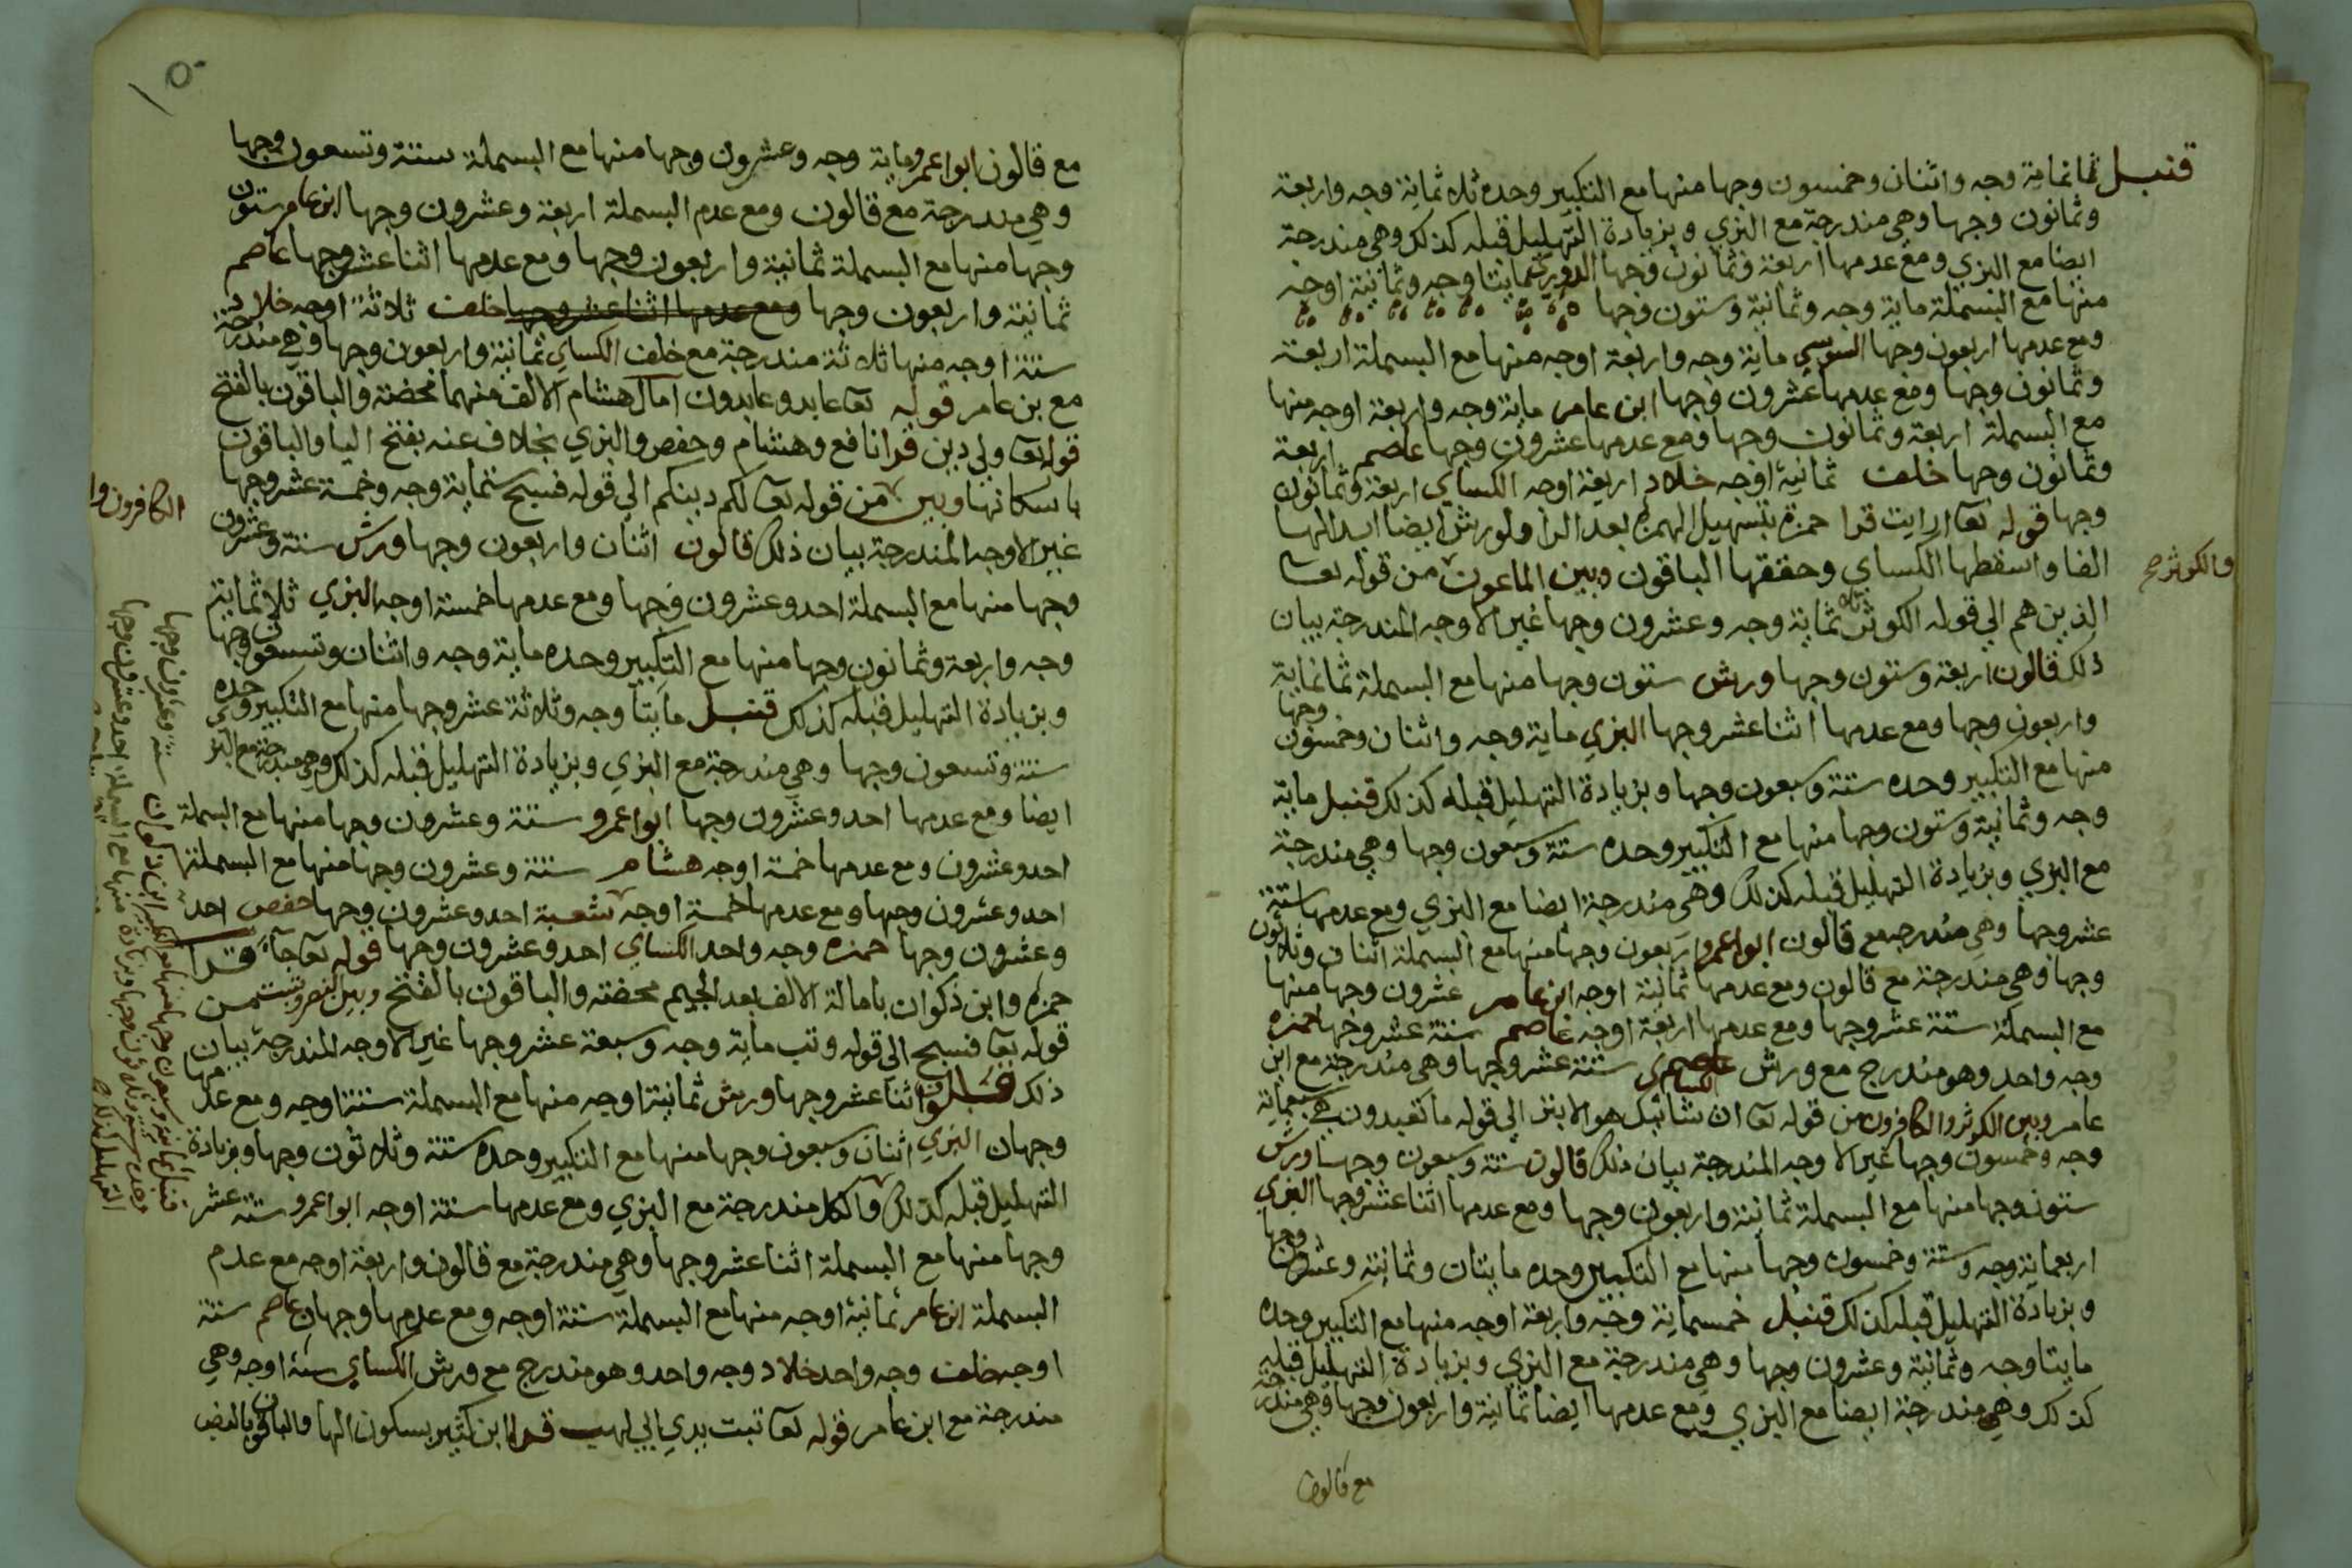 قنبل ثمانماية وجه واثنان وخمسون وجها منها مع التكبير وحده ثلاثماية وجه واربعة
وثمانون وجها وهي مندرجة مع البزي وبزيادة التهليل قبله كذلك وهي مندرجة
ايضا مع البزي ومع عدمها اربعة وثمانون وجها الدوري مايتا وجه وثمانية اوجه
منها مع البسملة ماية وجه وثمانية وستون وجها
ومع عدمها اربعون وجها السوسي ماية وجه واربعة اوجه منها مع البسملة اربعة
وثمانون وجها ومع عدمها عشرون وجها ابن عامر ماية وجه واربعة اوجه منها
مع البسملة اربعة وثمانون وجها ومع عدمها عشرون وجها عاصم اربعة
وثمانون وجها خلف ثمانية اوجه خلاد اربعة اوجه الكساي اربعة وثمانون
وجها قوله تعا ارايت قرا حمزة بتسهيل الهمزة بعد الرا ولورش ايضا ابدالها
الفا واسقطها الكساي وحققها الباقون وبين الماعون من قوله تعا
والكوثر صح
الذين هم الي قوله الكوثر ثلاثماية وجه وعشرون وجها غير الاوجه المندرجة بيان
ذلك قالون اربعة وستون وجها ورش ستون وجها منها مع البسملة ثمانماية
واربعون وجها ومع عدمها اثنا عشر وجها البزي ماية وجه واثنان وخمسون وجها
منها مع التكبير وحده ستة وسبعون وجها وبزيادة التهليل قبله كذلك قنبل ماية
وجه وثمانية وستون وجها منها مع التكبير وحده ستة وسبعون وجها وهي مندرجة
مع البزي وبزيادة التهليل قبله كذلك وهي مندرجة ايضا مع البزي ومع عدمها ستة
عشر وجها وهي مندرجة مع قالون ابو اعمرو اربعون وجها منها مع البسملة اثنان وثلاثون
وجها وهي مندرجة مع قالون ومع عدمها ثمانية اوجه ابن عامر عشرون وجها منها
مع البسملة ستة عشر وجها ومع عدمها اربعة اوجه عاصم ستة عشر وجها حمزة
وجه واحد وهو مندرج مع ورش الكساي ستة عشر وجها وهي مندرجة مع ابن
عامر وبين الكوثر والكافرون من قوله تعا ان شانئك هو الابتر الي قوله ما تعبدون سبعماية
وجه وخمسون وجها غير الاوجه المندرجة بيان ذلك قالون ستة وسبعون وجها ورش
ستون وجها منها مع البسملة ثمانية واربعون وجها ومع عدمها اثنا عشر وجها البزي
اربعماية وجه وستة وخمسون وجها منها مع التكبير وحده مايتان وثمانية وعشرون وجها
وبزيادة التهليل قبله كذلك قنبل خمسماية وجه واربعة اوجه منها مع التكبير وحده
مايتا وجه وثمانية وعشرون وجها وهي مندرجة مع البزي وبزيادة التهليل قبله
كذلك وهي مندرجة ايضا مع البزي ومع عدمها ايضا ثمانية واربعون وجها وهي مندرجة
مع قالون
مع قالون ابو اعمرو ماية وجه وعشرون وجها منها مع البسملة ستة وتسعون وجها
وهي مندرجة مع قالون ومع عدم البسملة اربعة وعشرون وجها ابن عامر ستون
وجها منها مع البسملة ثمانية واربعون وجها ومع عدمها اثنا عشر وجها عاصم
ثمانية واربعون وجها ومع عدمها اثنا عشر وجها خلف ثلاثة اوجه خلاد
ستة اوجه منها ثلاثة مندرجة مع خلف الكساي ثمانية واربعون وجها وهي مندرجة
مع بن عامر قوله تعا عابد وعابدون امال هشام الالف منهما محضة والباقون بالفتح
قوله تعا ولي دين قرا نافع وهشام وحفص والبزي بخلاف عنه بفتح اليا والباقون
باسكانها وبين من قوله تعا لكم دينكم الي قوله فسبح ستماية وجه وخمسة عشر وجها
الكافرون وا
غير الاوجه المندرجة بيان ذلك قالون اثنان واربعون وجها ورش ستة وعشرون
وجها منها مع البسملة احد وعشرون وجها ومع عدمها خمسة اوجه البزي ثلاثماية
وجه واربعة وثمانون وجها منها مع التكبير وحده ماية وجه واثنان وتسعون وجها
وبزيادة التهليل قبله كذلك قنبل مايتا وجه وثلاثة عشر وجها منها مع التكبير وحده
ستة وتسعون وجها وهي مندرجة مع البزي وبزيادة التهليل قبله كذلك وهي مندرجة مع البزي
ايضا ومع عدمها احد وعشرون وجها ابو اعمرو ستة وعشرون وجها منها مع البسملة
احد وعشرون ومع عدمها خمسة اوجه هشام ستة وعشرون وجها منها مع البسملة
احد وعشرون وجها ومع عدمها خمسة اوجه شعبة احد وعشرون وجها حفص احد
وعشرون وجها حمزه وجه واحد الكساي احد وعشرون وجها قوله تعا جآ قرا
حمزة وابن ذكوان بامالة الالف بعد الجيم محضته والباقون بالفتح وبين النصر وتبت من
قوله تعا فسبح الى قوله وتب ماية وجه وسبعة عشر وجها غير الاوجه المندرجة بيان
ذلك قالون اثنا عشر وجها ورش ثمانية اوجه منها مع البسملة ستة اوجه ومع عدمها
وجهان البزي اثنان وسبعون وجها منها مع التكبير وحده ستة وثلاثون وجها وبزيادة
التهليل قبله كذلك والكل مندرجة مع البزي ومع عدمها ستة اوجه ابو اعمرو ستة عشر
وجها منها مع البسملة اثنا عشر وجها وهي مندرجة مع قالون واربعة اوجه مع عدم
البسملة ابن عامر ثمانية اوجه منها مع البسملة ستة اوجه ومع عدمها وجهان عاصم ستة
اوجه خلف وجه واحد خلاد وجه واحد وهو مندرج مع ورش الكساي ستة اوجه وهي
مندرجة مع ابن عامر قوله تعا تبت يدي ابي لهب قرا ابن كثير بسكون الها والباقون بالفتح